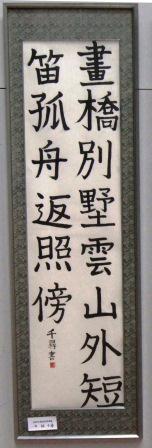 畫橋別墅雲山外短
笛孤舟返照傍
千尋書